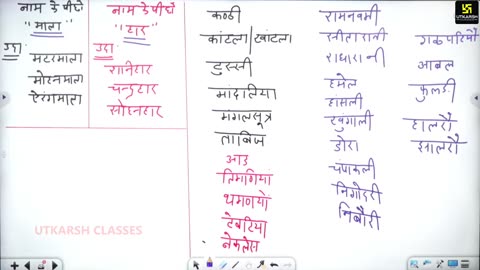 नाम के पीछे
"माला"
उदा०
मटरमाला
मोहनमाला
नाम के पीछे
"हार"
उदा०
रानीहार
चन्द्रहार
सोहनहार
कण्ठी
कांठला/खांठला
ठुस्सी
मादलिया
मंगलसूत्र
ताबिज
आड
तिमणिया
थमण्यो
टेवटिया
नेकलेस
रामनवमी
सीतारानी
राधारानी
हमेल
हांसली
खुंगाली
डोरा
चंपाकली
निगोदरी
निबौरी
गलपटियौ
आबल
फुलडी
हालरौ
झालरौ
UTKARSH CLASSES
UTKARSH